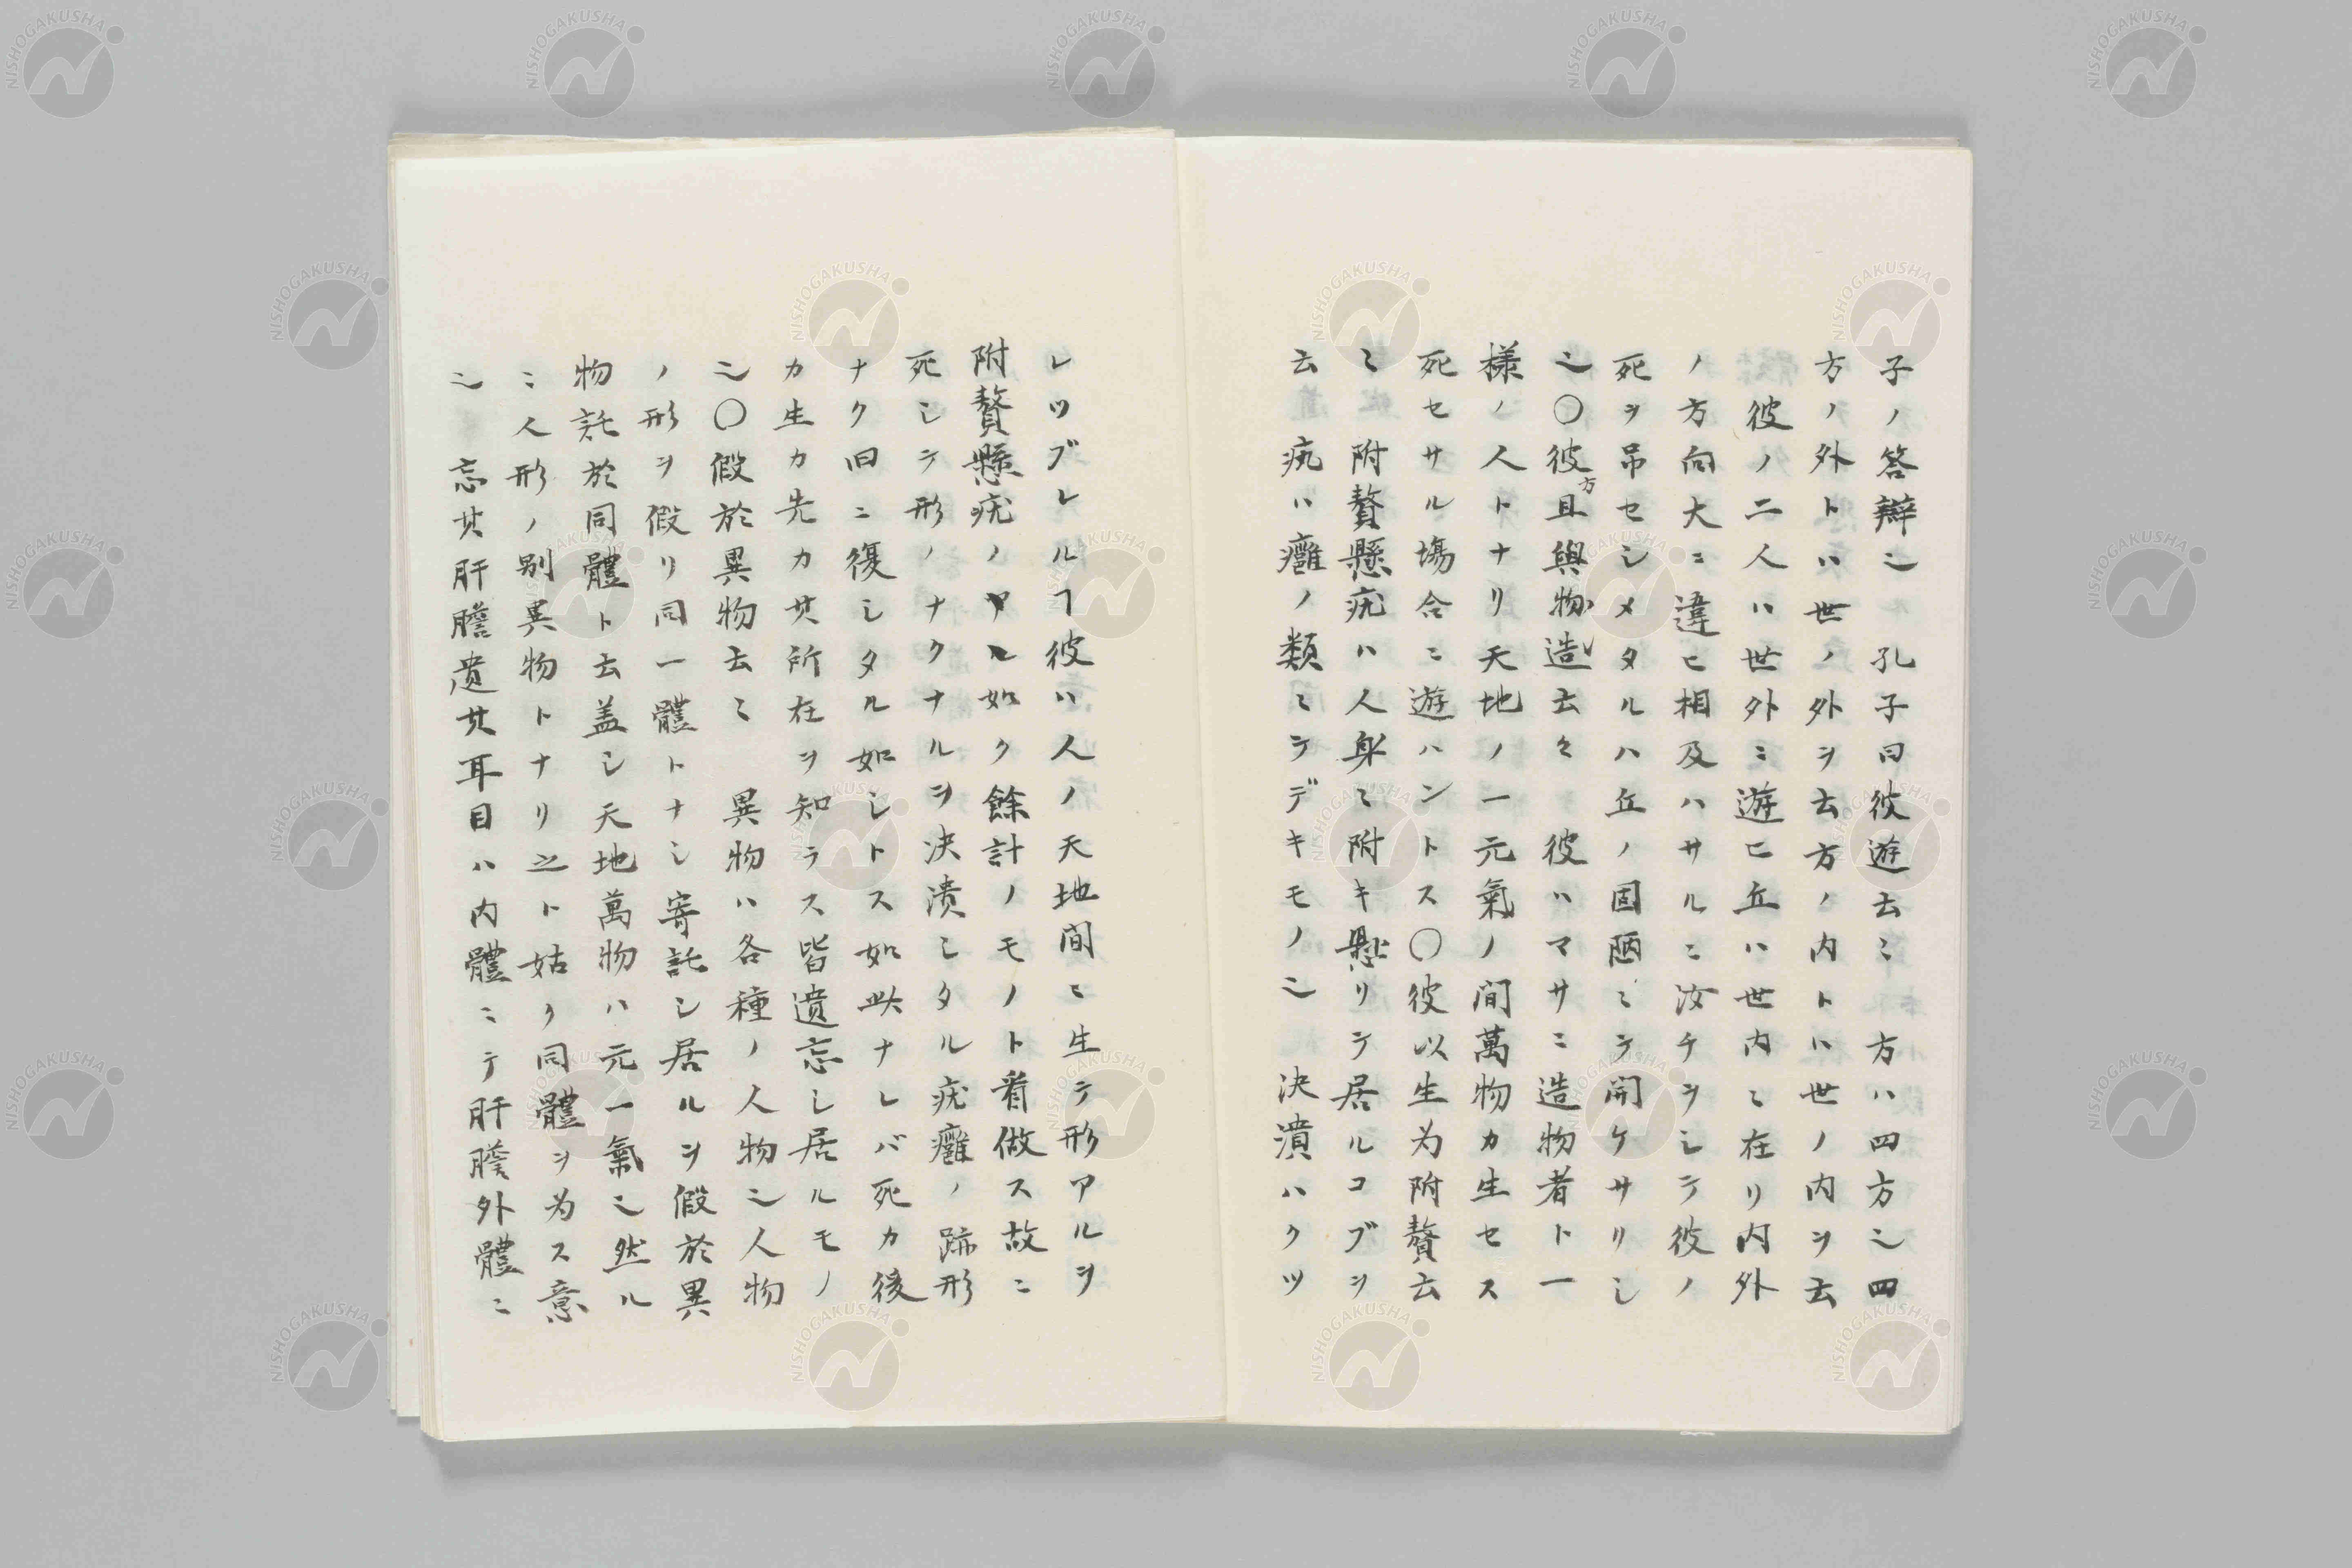 子ノ答辯ニ孔子曰彼遊云ミ方ハ四方ニ四
方ノ外トハ世ノ外ヲ云方ノ内トハ世ノ内ヲ云
彼ノ二人ハ世外ミ遊ヒ丘ハ世内ミ在リ内外
ノ方向大ニ違ヒ相及ハサルニ汝チヲシテ彼ノ
死ヲ吊セシメタルハ丘ノ固陋ミテ開ケサリシ
ニ〇彼方且與物造云々彼ハマサニ造物者ト一
様ノ人トナリ天地ノ一元氣ノ間萬物カ生セス
死セサル塲合ニ遊ハントス〇彼以生为附贅云
ミ附贅懸疣ハ人身ミ附キ懸リテ居ルコブヲ
云疣ハ癰ノ類ミテデキモノニ決潰ハクツ
レツブレルヿ彼ハ人ノ天地間ミ生テ形アルヲ
附贅懸疣ノアル如ク餘計ノモノト看做ス故ニ
死シテ形ノナクナルヲ決潰ミタル疣癰ノ跡形
ナク旧ニ復シタル如シトス如此ナレバ死カ後
カ生カ先カ其所在ヲ知ラス皆遺忘シ居ルモノ
ニ〇假於異物云ミ異物ハ各種ノ人物ニ人物
ノ形ヲ假リ同一體トナシ寄託シ居ルヲ假於異
物託於同體ト云盖シ天地萬物ハ元一氣ニ然ル
ニ人形ノ別異物トナリ之ト姑ク同體ヲ为ス意
ニ忘其肝膽遺其耳目ハ内體ニテ肝膽外體ニ
NISHOGAKUSHA